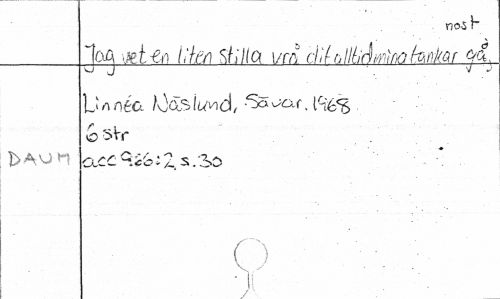 nost
Jag vet en liten stilla vrå dit alltid mina tankar gå,
Linnéa Näslund, Sävar. 1968
6 str
DAUM acc 966:2, s. 30